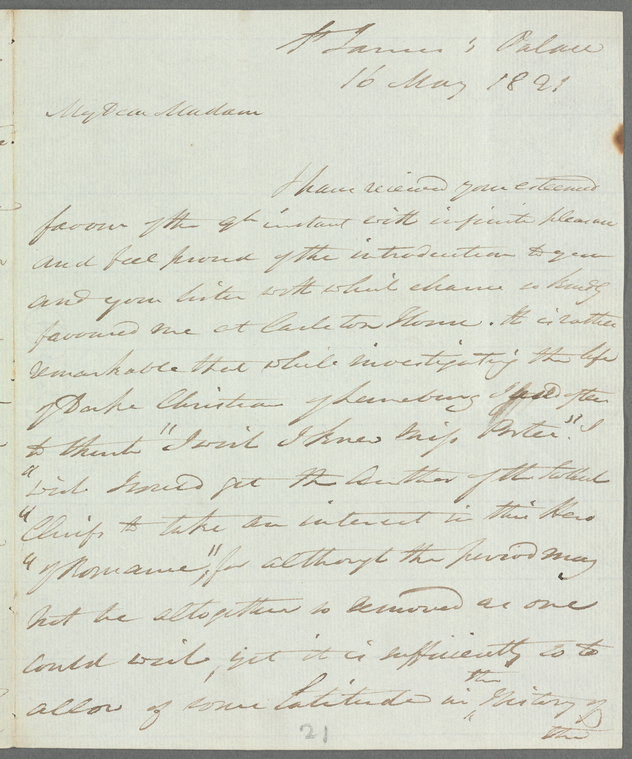 St James's Palace
16 May 1821
My Dear Madam
I have received your esteemed
favour of the 9th instant with infinite pleasure
and feel proud of the introduction to you
and your Sister with which chance so kindly
favoured me at Carleton House. It is rather
remarkable that while investigating the life
of Duke Christian of Luneburg I used often
to think "I wish I knew Miss Porter". I
"wish I could get the Author of the Scottish
"Chiefs to take an interest in this Hero
"of Romance", for although the period may
not be altogether so removed as one
could wish, yet it is sufficiently so to
allow of some Latitude in the History of
the
21